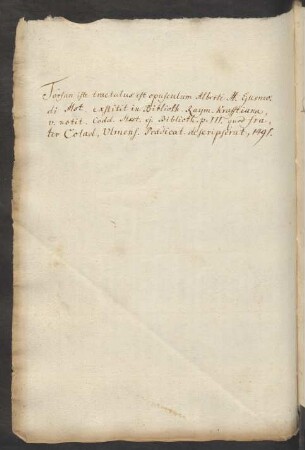 Forsan iste tractatulus est opusculum Alberti M.
di Mst. exstitit in Biblioth. Raym. Krafftiana,
v. notit. Codd. Msst. ej. Biblioth. p. III. quod fra,
ter Colad, Ulmens. Prædicat. descripserat, 1491.